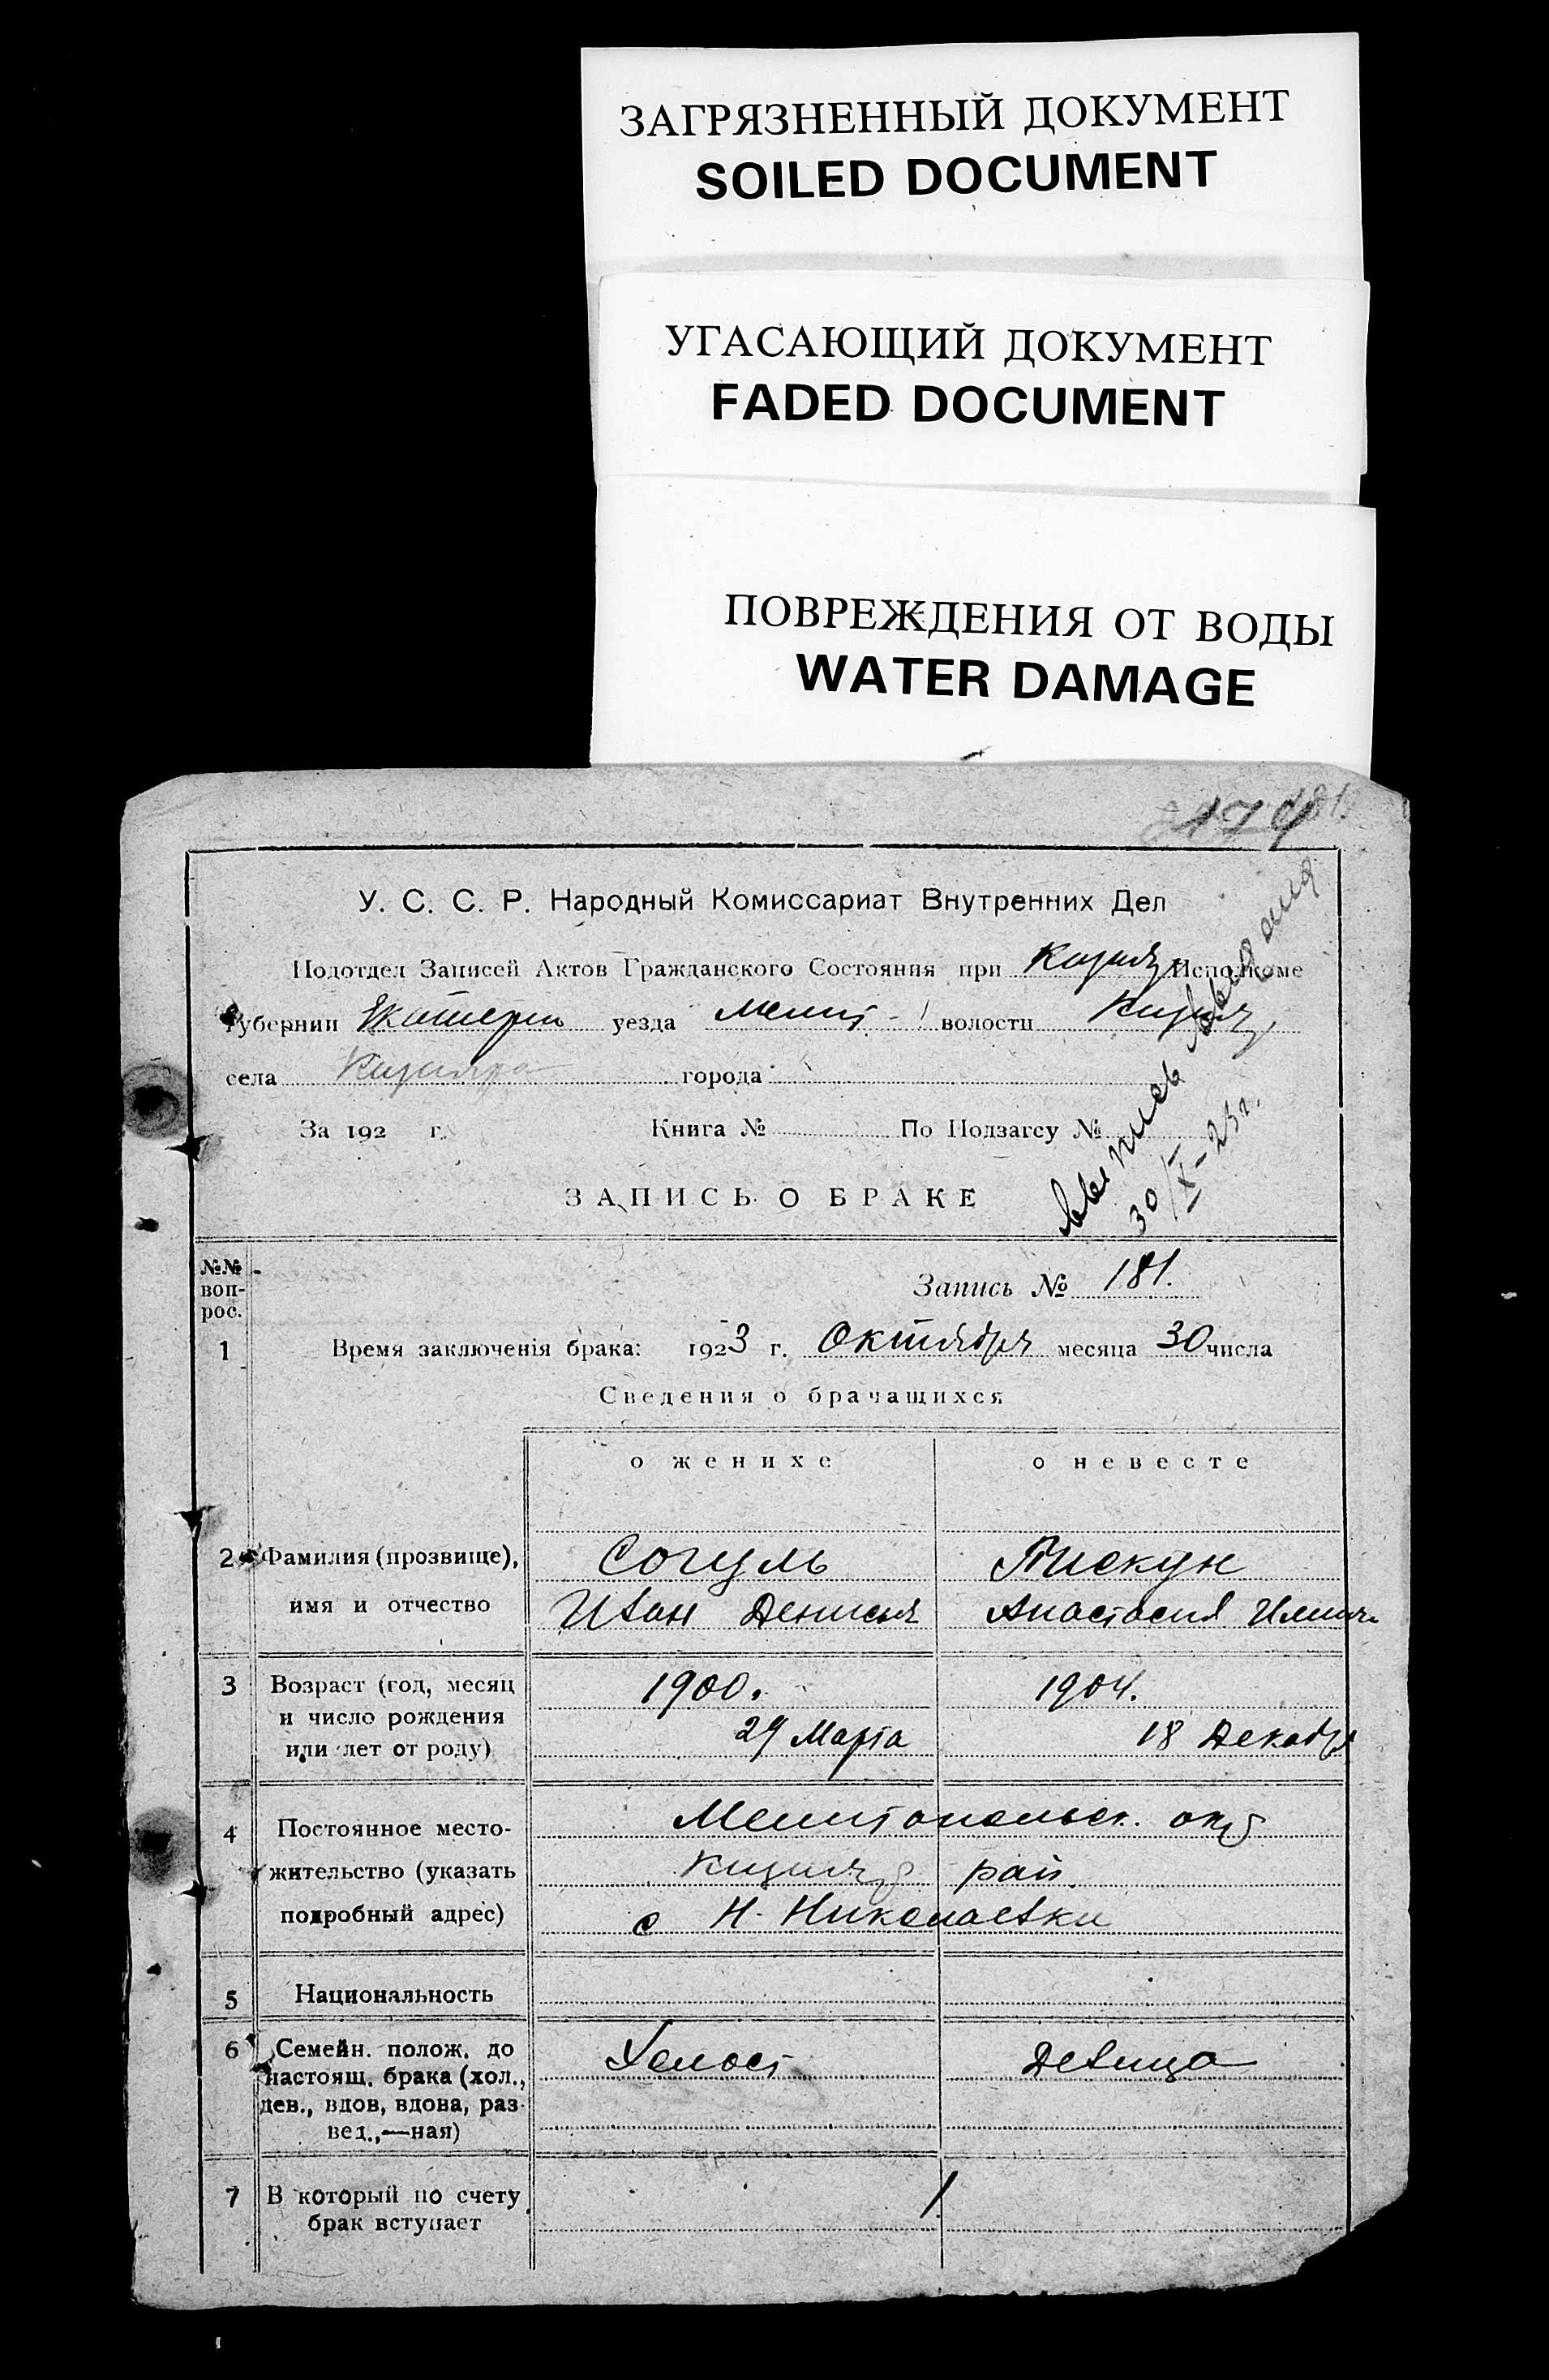 ЗАГРЯЗНЕННЫЙ ДОКУМЕНТ
SOILED DOCUMENT
УГАСАЮЩИЙ ДОКУМЕНТ
FADED DOCUMENT
ПОВРЕЖДЕНИЯ ОТ ВОДЫ
WATER DAMAGE
У. С. С. Р. Народный Комиссариат Внутренних Дел
Подотдел Записей Актов Гражданского Состояния при Кизияр Исполкоме
Губернии Екатерин уезда Мелит волости Кизияр
села Кизияра города
За 192 г. Книга № По Подзагсу №
Выпись выдана
30/X-23 г.
ЗАПИСЬ О БРАКЕ
№№ воп-
рос.
Запись № 181.
1 Время заключенія брака: 1923 г. Октября месяца 30 числа
Сведения о брачащихся
о женихе о невесте
2 Фамилия (прозвище), Согуль Пискун
имя и отчество Иван Денисья Анастасия Ильин.
3 Возраст (год, месяц 1900. 1904.
и число рождения
или лет от роду) 29 Марта 18 Декабр
4 Постоянное место- Мелитопольск. окр
жительство (указать Кизияр рай.
подробный адрес) с Н. Николаевки
5 Национальность
6 Семейн. полож. до Холост девица
настоящ. брака (хол.,
дев., вдов, вдова, раз-
вед.,—ная)
7 В который по счету 1
брак вступает